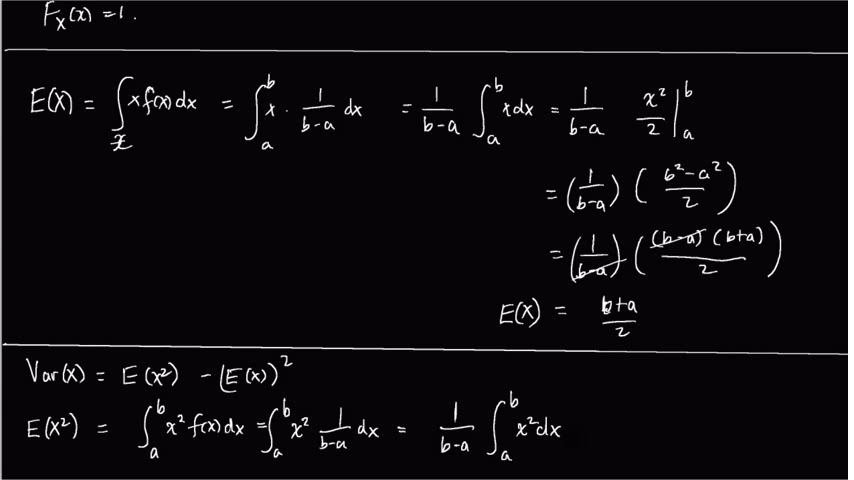 F_X(x) = 1.
E(X) = ∫_𝒳 x f(x) dx = ∫_a^b x · 1/(b-a) dx = 1/(b-a) ∫_a^b x dx = 1/(b-a) x²/2 |_a^b
= (1/(b-a)) ((b² - a²)/2)
= (1/(b-a)) ((b-a)(b+a)/2)
E(X) = (b+a)/2
Var(X) = E(X²) - (E(X))²
E(X²) = ∫_a^b x² f(x) dx = ∫_a^b x² 1/(b-a) dx = 1/(b-a) ∫_a^b x² dx